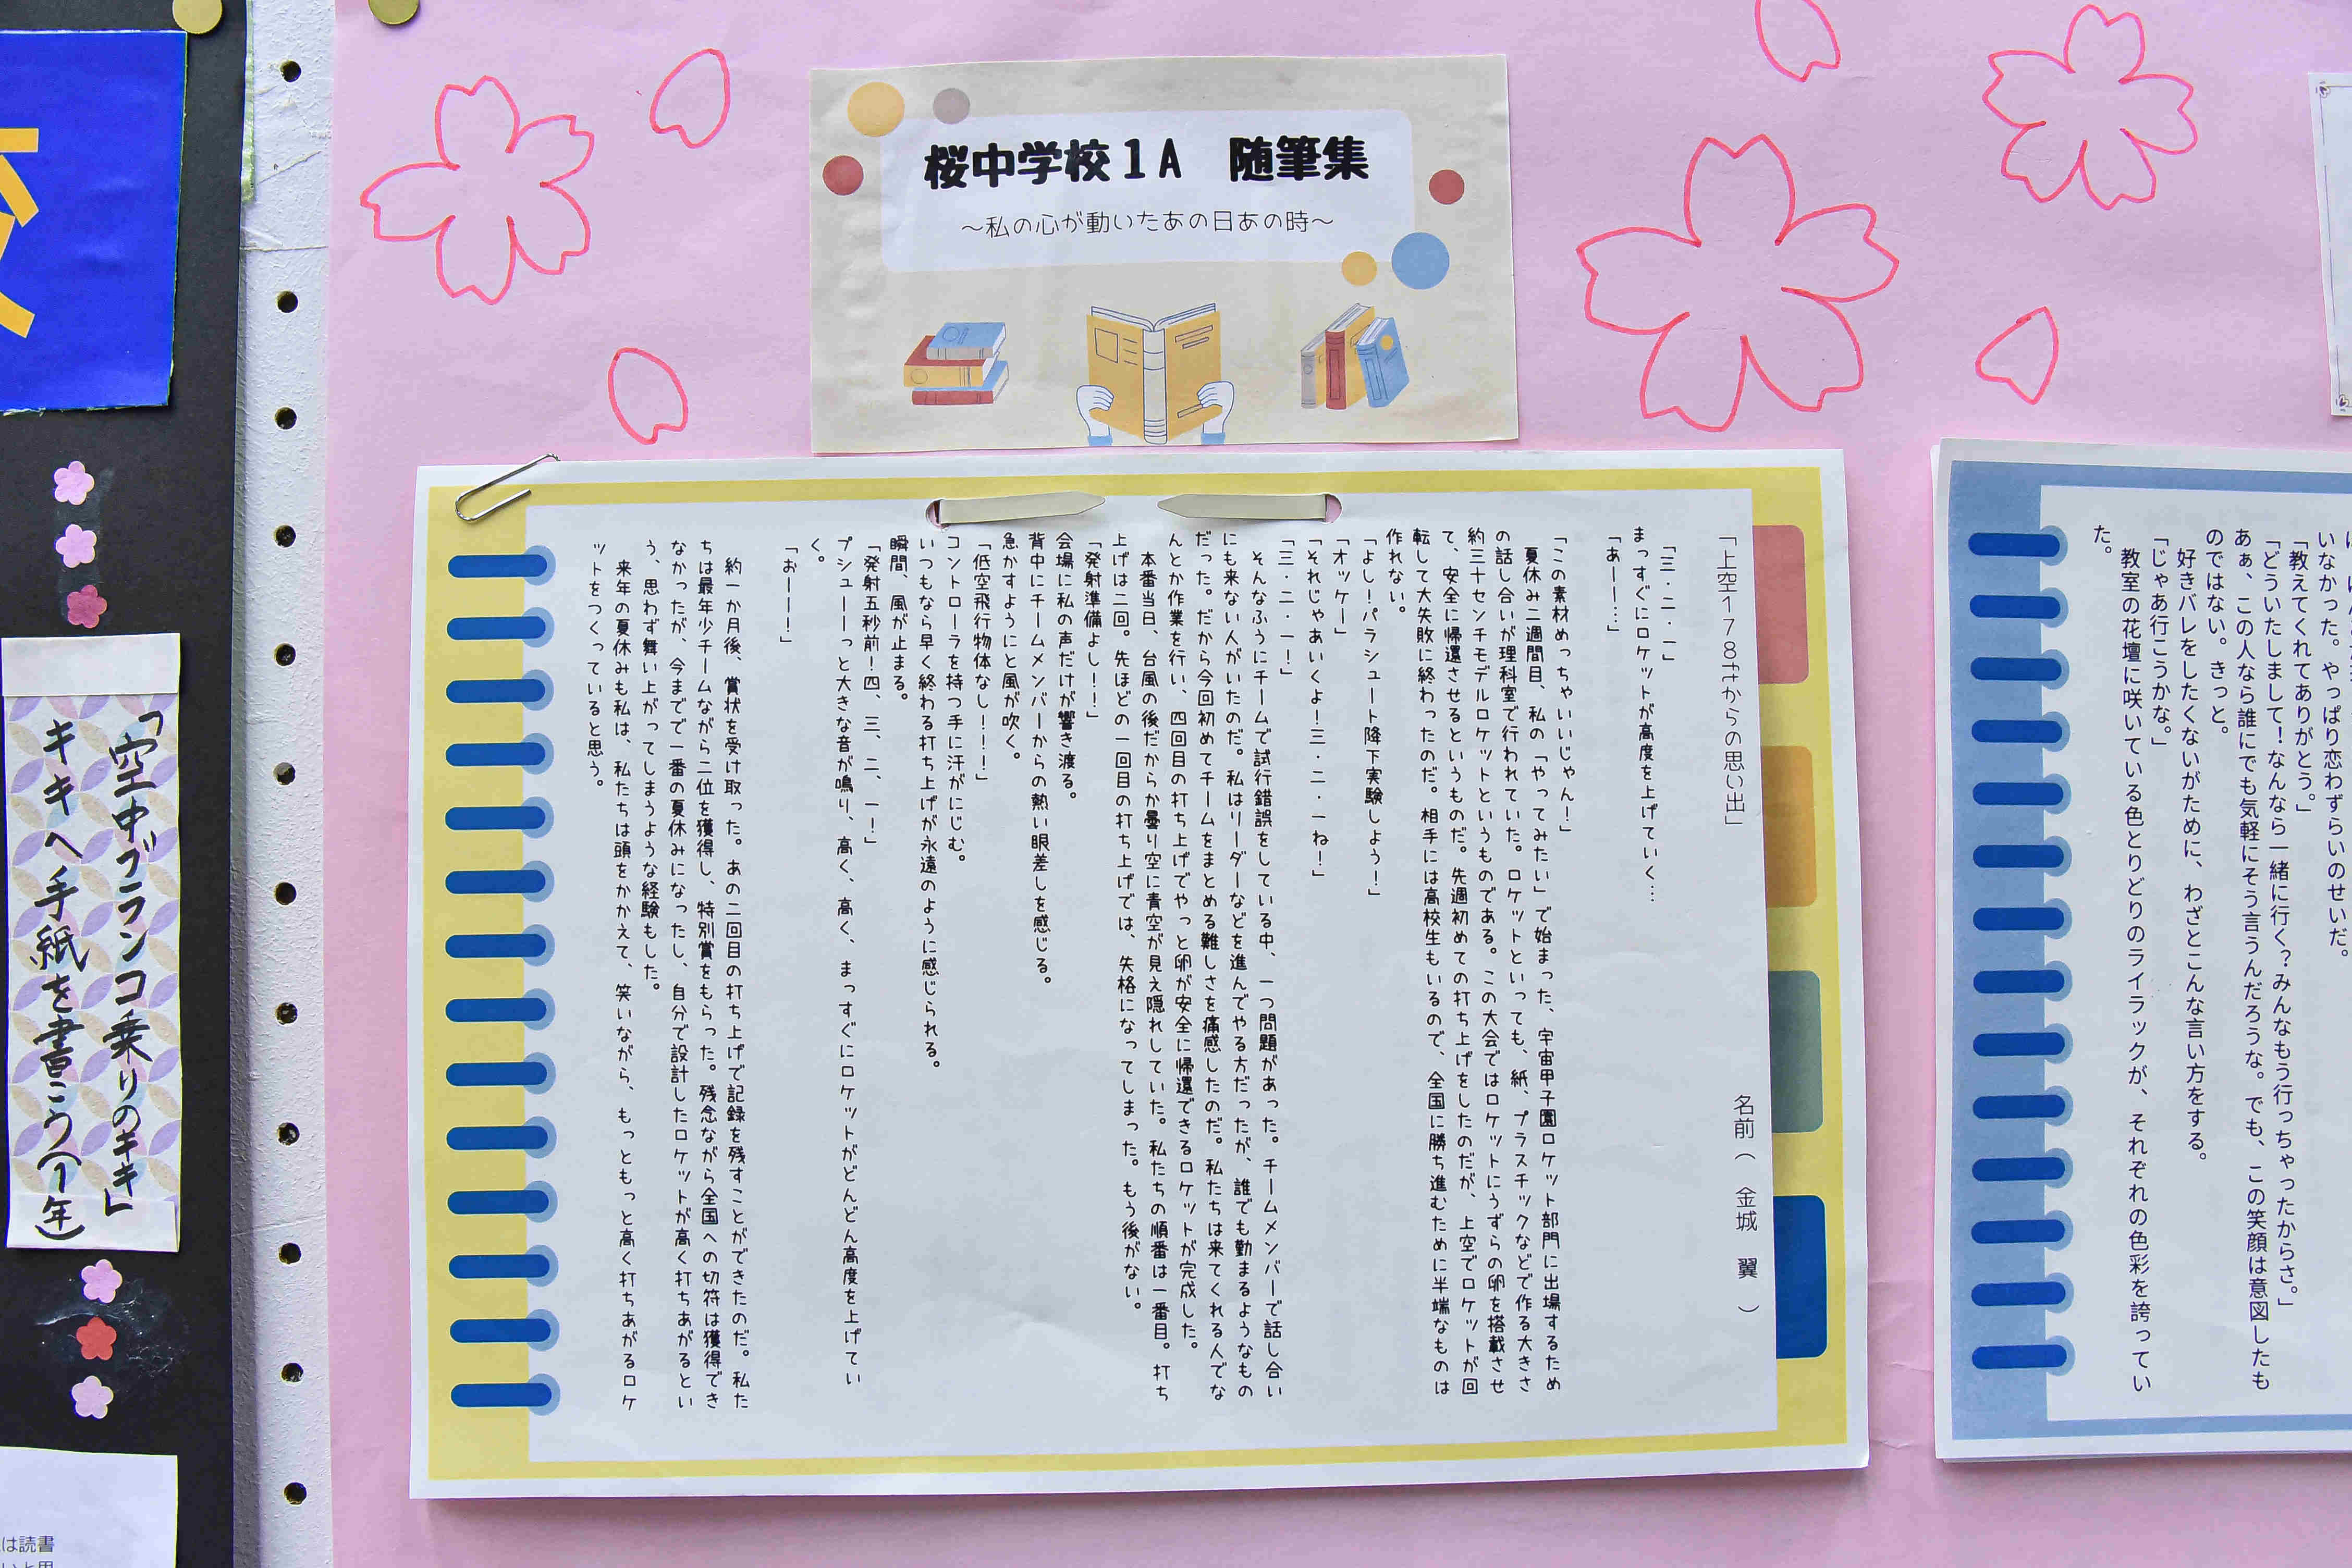 桜中学校1A 随筆集
～私の心が動いたあの日あの時～
「上空178ｍからの思い出」
名前（ 金城 翼 ）
「三・二・一」
まっすぐにロケットが高度を上げていく…
「あーー…」
「この素材めっちゃいいじゃん！」
夏休み二週間目、私の「やってみたい」で始まった、宇宙甲子園ロケット部門に出場するため
の話し合いが理科室で行われていた。ロケットといっても、紙、プラスチックなどで作る大きさ
約三十センチモデルロケットというものである。この大会ではロケットにうずらの卵を搭載させ
て、安全に帰還させるというものだ。先週初めての打ち上げをしたのだが、上空でロケットが回
転して大失敗に終わったのだ。相手には高校生もいるので、全国に勝ち進むために半端なものは
作れない。
「よし！パラシュート降下実験しよう！」
「オッケー」
「それじゃあいくよ！三・二・一ね！」
「三・二・一！」
そんなふうにチームで試行錯誤をしている中、一つ問題があった。チームメンバーで話し合い
にも来ない人がいたのだ。私はリーダーなどを進んでやる方だったが、誰でも勤まるようなもの
だった。だから今回初めてチームをまとめる難しさを痛感したのだ。私たちは来てくれる人でな
んとか作業を行い、四回目の打ち上げでやっと卵が安全に帰還できるロケットが完成した。
本番当日、台風の後だからか曇り空に青空が見え隠れしていた。私たちの順番は一番目。打ち
上げは二回。先ほどの一回目の打ち上げでは、失格になってしまった。もう後がない。
「発射準備よし！！」
会場に私の声だけが響き渡る。
背中にチームメンバーからの熱い眼差しを感じる。
急かすようにと風が吹く。
「低空飛行物体なし！！！」
コントローラを持つ手に汗がにじむ。
いつもなら早く終わる打ち上げが永遠のように感じられる。
瞬間、風が止まる。
「発射五秒前！四、三、二、一！」
プシューーっと大きな音が鳴り、高く、高く、まっすぐにロケットがどんどん高度を上げてい
く。
「おーーー！」
約一か月後、賞状を受け取った。あの二回目の打ち上げで記録を残すことができたのだ。私た
ちは最年少チームながら二位を獲得し、特別賞をもらった。残念ながら全国への切符は獲得でき
なかったが、今までで一番の夏休みになったし、自分で設計したロケットが高く打ちあがるとい
う、思わず舞い上がってしまうような経験もした。
来年の夏休みも私は、私たちは頭をかかえて、笑いながら、もっともっと高く打ちあがるロケ
ットをつくっていると思う。
いなかった。やっぱり恋わずらいのせいだ。
「教えてくれてありがとう。」
「どういたしまして！なんなら一緒に行く？みんなもう行っちゃったからさ。」
あぁ、この人なら誰にでも気軽にそう言うんだろうな。でも、この笑顔は意図したも
のではない。きっと。
好きバレをしたくないがために、わざとこんな言い方をする。
「じゃあ行こうかな。」
教室の花壇に咲いている色とりどりのライラックが、それぞれの色彩を誇ってい
た。
「空中ブランコ乗りのキキ」
キキへ手紙を書こう（1年）
は読書